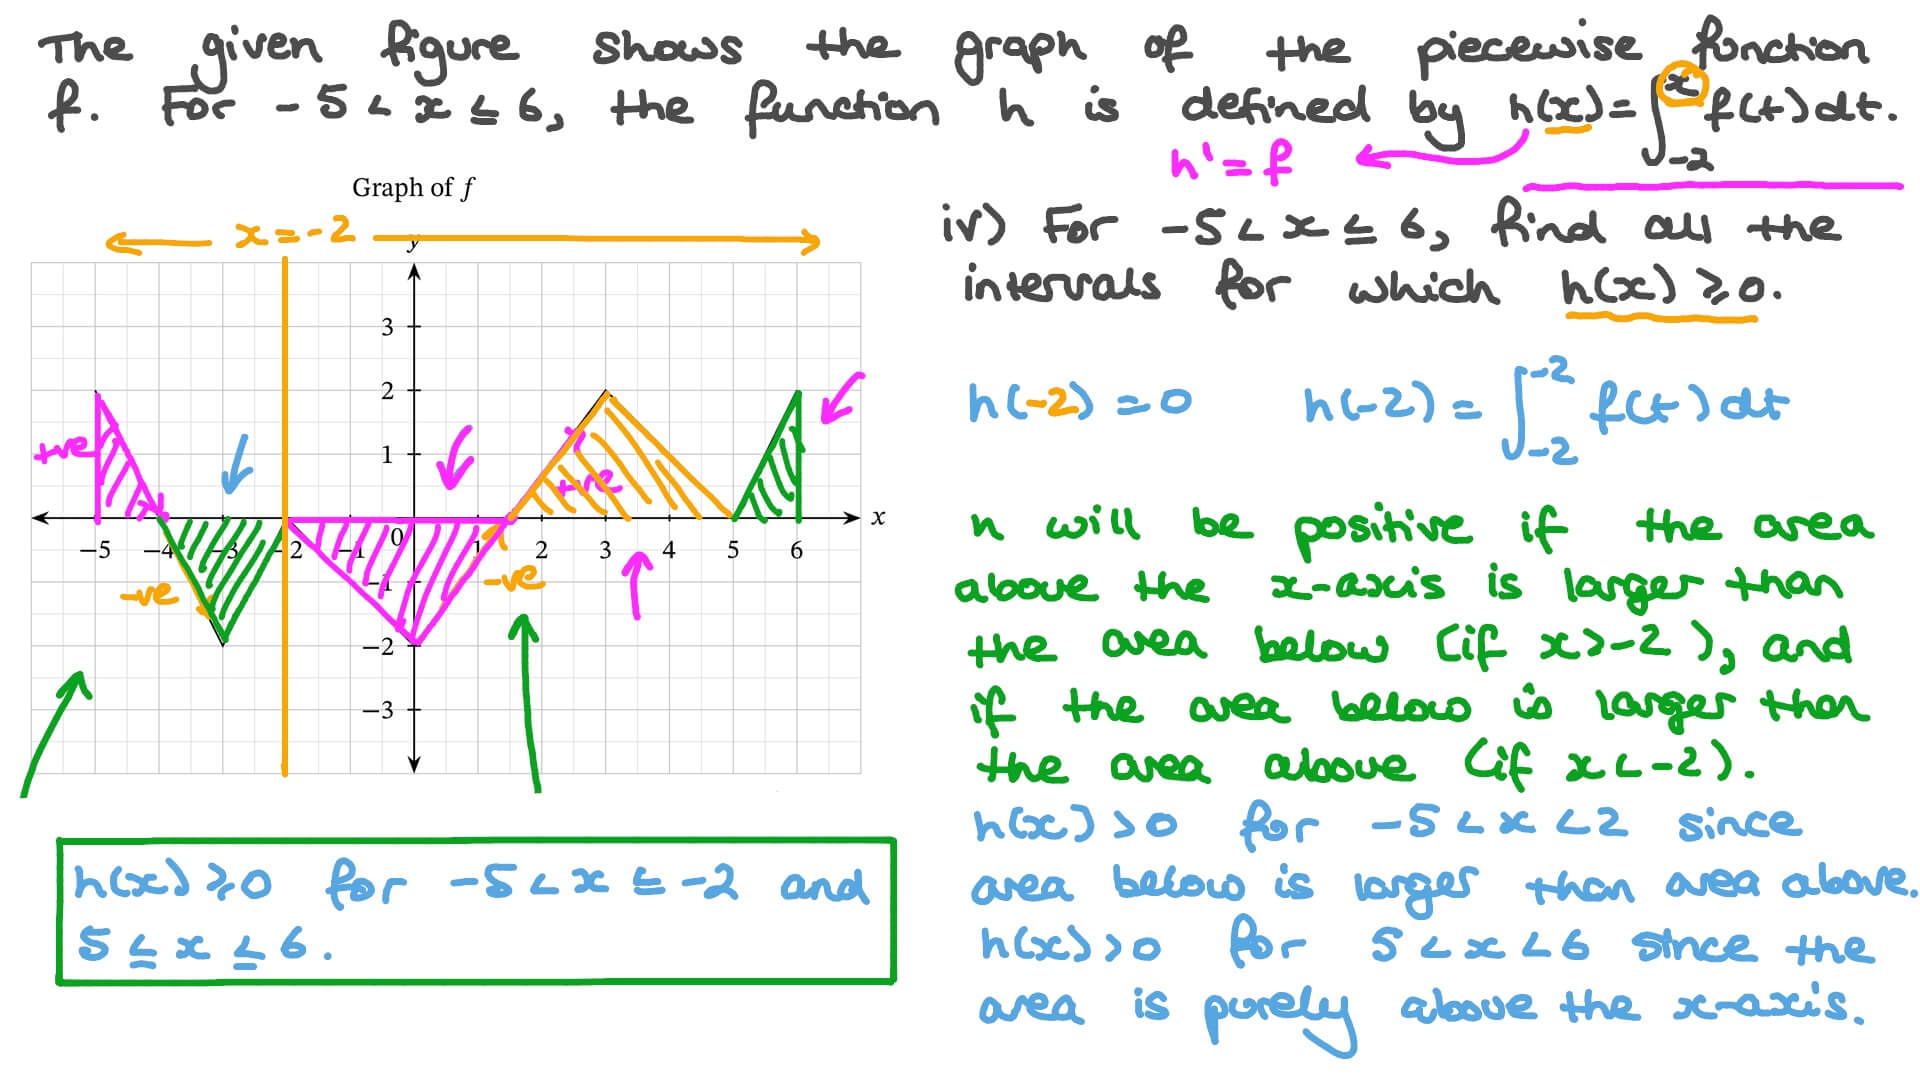 The given figure shows the graph of the piecewise function
f. For -5 < x ≤ 6, the function h is defined by h(x)=∫_{-2}^{x} f(t)dt.
h' = f
Graph of f
x = -2
iv) For -5 < x ≤ 6, find all the
intervals for which h(x) ≥ 0.
y
3
2
1
0
-1
-2
-3
-5 -4 -3 -2 -1 1 2 3 4 5 6 x
+ve
-ve
-ve
+ve
h(-2) = 0 h(-2) = ∫_{-2}^{-2} f(t)dt
h will be positive if the area
above the x-axis is larger than
the area below (if x>-2), and
if the area below is larger than
the area above (if x<-2).
h(x) >0 for -5 < x < 2 since
area below is larger than area above.
h(x) >0 for 5 < x < 6 since the
area is purely above the x-axis.
h(x) ≥ 0 for -5 < x ≤ -2 and
5 ≤ x ≤ 6.